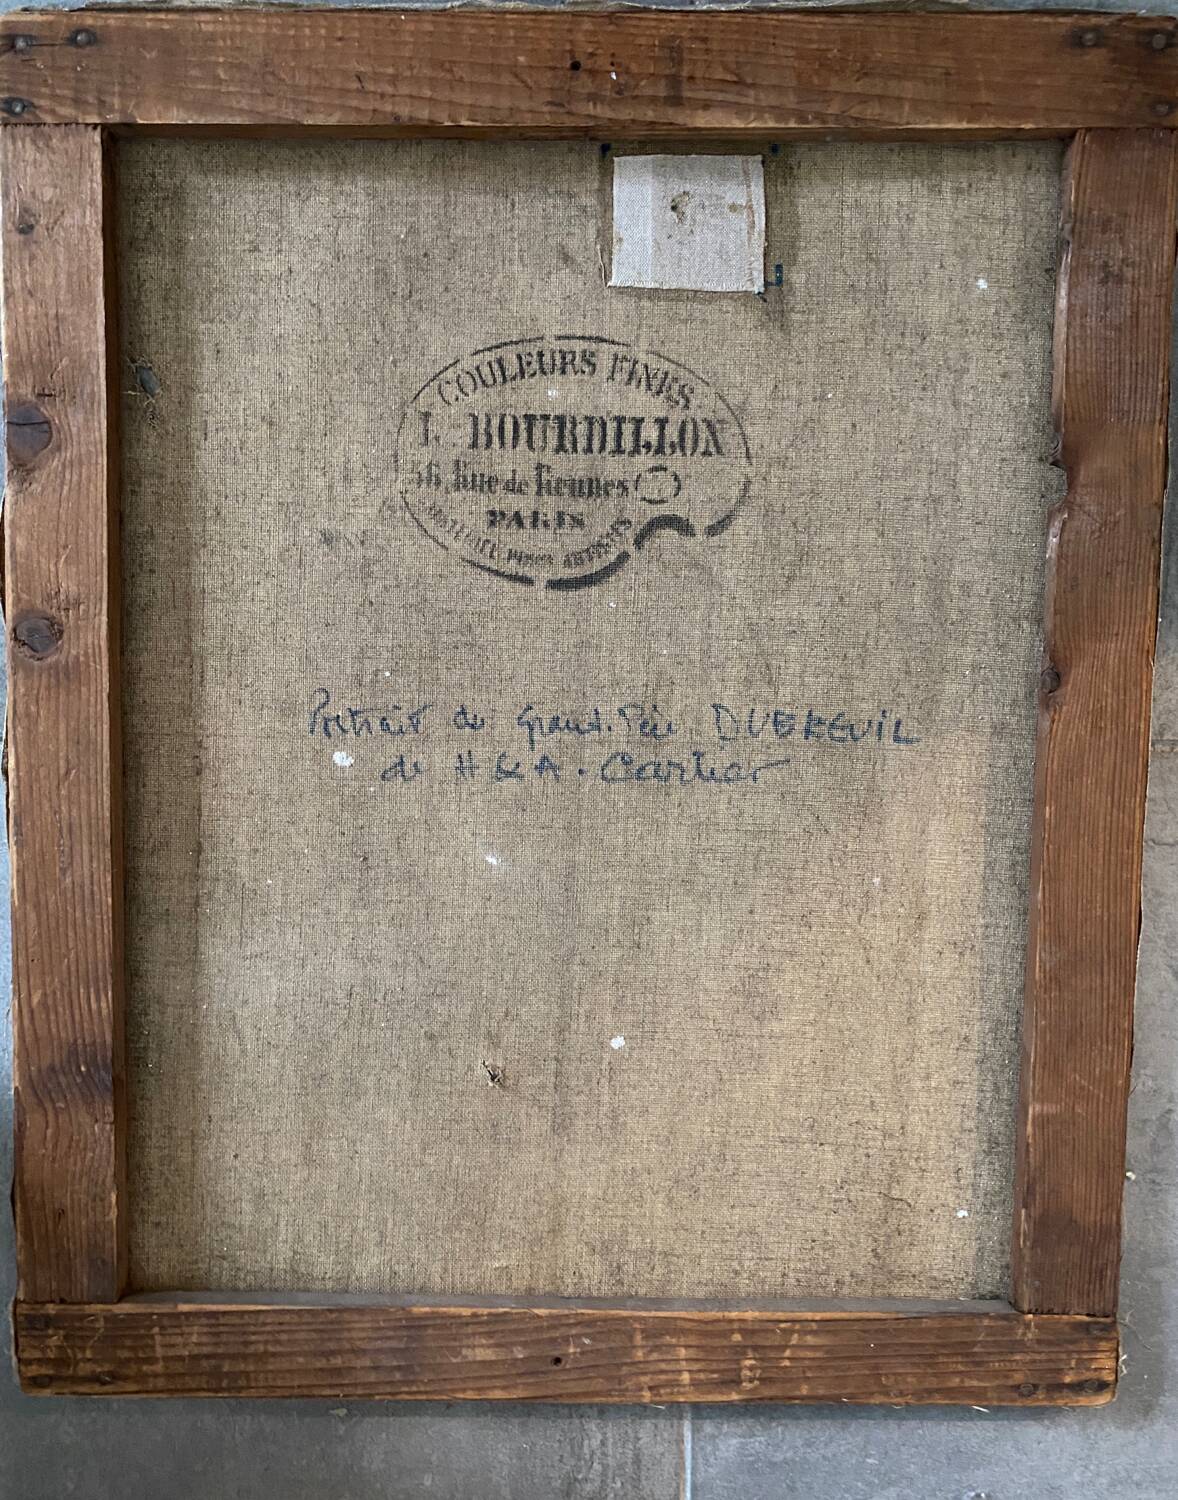 COULEURS FINES
L. BOURDILLON
56, Rue de Rennes
PARIS
MATÉRIEL POUR ARTISTES
Portrait du Grand. Père DUBREUIL
de H & A. Cartier